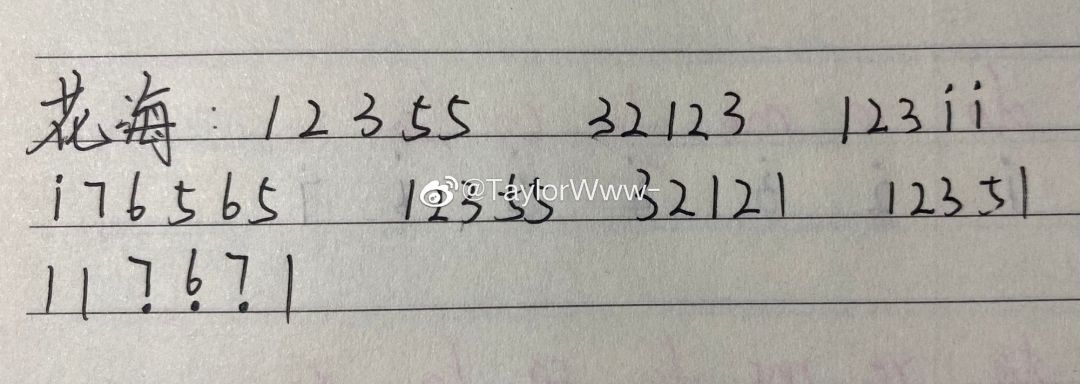 花海: 12355 32123 123i̇i̇
i̇76565 12355 32121 12351
117̣6̣7̣1
@TaylorWww-